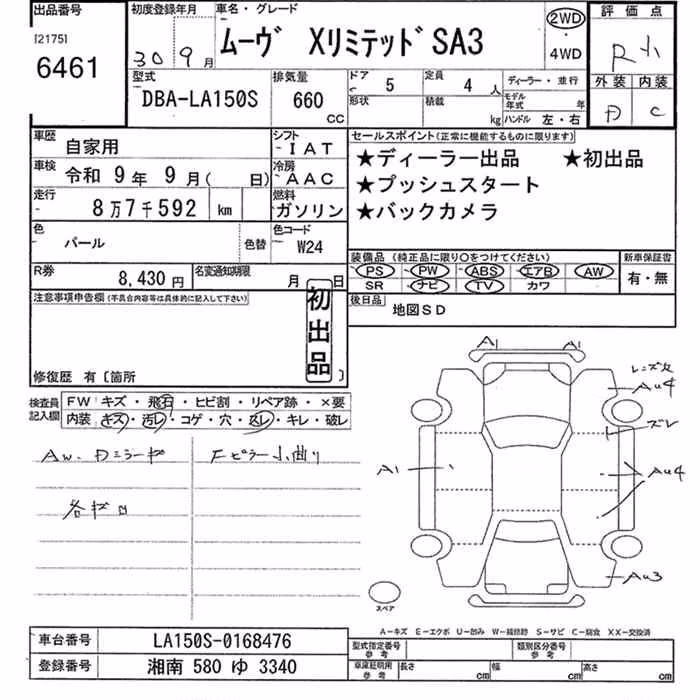 出品番号
[2175]
6461
初度登録年月
30年 9月
車名・グレード
ムーヴ XリミテッドSA3
2WD
・
4WD
評価点
R小
外装 内装
D C
型式
DBA-LA150S
排気量
660
CC
ドア 5
形状
定員 4 人
積載 kg
ディーラー・並行
モデル年式 年
ハンドル 左・右
車歴 自家用
シフト IAT
車検 令和 9年 9月( 日)
冷房 AAC
走行 8万7千592 km
燃料 ガソリン
色 パール
色替
色コード W24
R券 8,430円
名変通知期限 月 日
セールスポイント(正常に機能するものに限ります)
★ディーラー出品 ★初出品
★プッシュスタート
★バックカメラ
装備品 (純正品に限り○をつけてください)
PS PW ABS エアB AW
SR ナビ TV カワ
新車保証書
有・無
後日品
地図SD
注意事項申告欄(不具合内容等は具体的に記入して下さい)
初出品
修復歴 有〔箇所 〕
検査員記入欄
FW キズ・飛石・ヒビ割・リペア跡・×要
内装 キズ・汚レ・コゲ・穴・凹レ・キレ・破レ
AW、Dミラーキズ
Fピラー小曲り
各キズ凹
A1 A1
レンズキズ
AU4
ズレ
A1
AU4
AU3
スペア
A-キズ E-エクボ U-凹み W-補修跡 S-サビ C-腐食 XX-交換済
車台番号 LA150S-0168476
登録番号 湘南 580 ゆ 3340
型式指定番号 参考
類別区分番号 参考
車庫証明用 参考
長さ cm
幅 cm
高さ cm